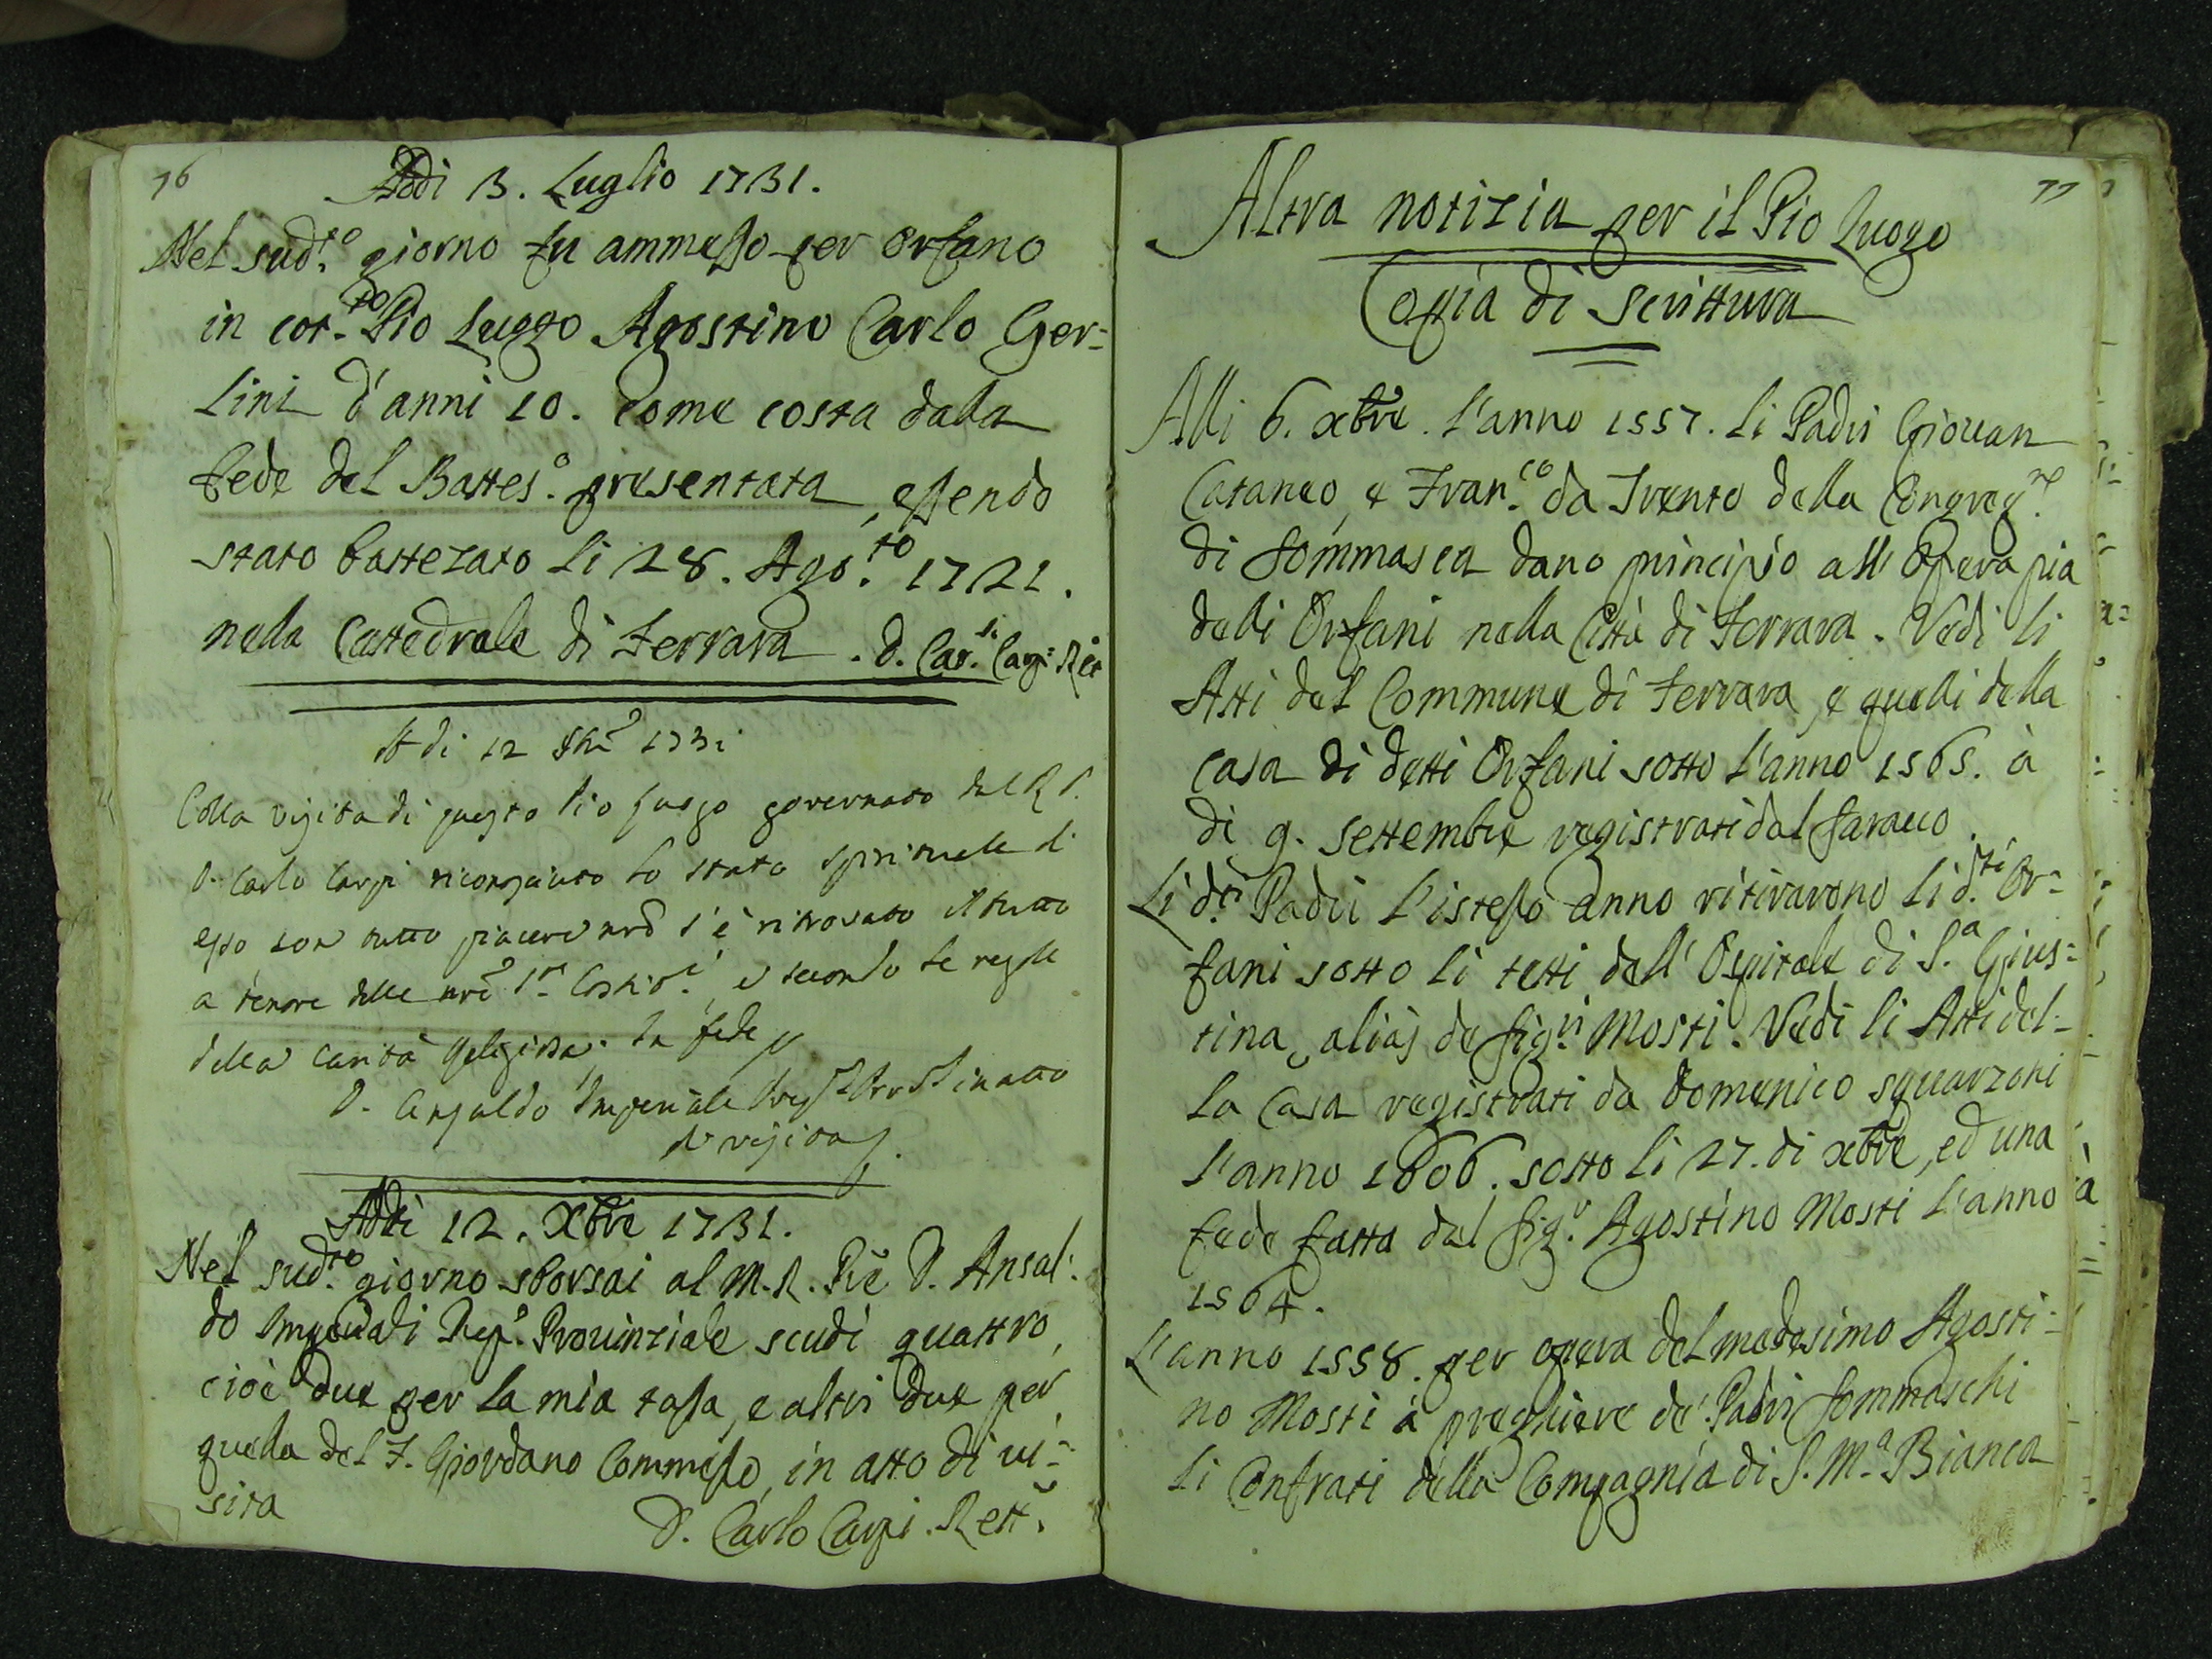 76
Addi 3. Luglio 1731.
Nel sud.to giorno fu ammesso per Orfano
in cot.to Pio Luogo Agostino Carlo Ger=
lini d'anni 10. come costa dalla
fede del Battes.o presentata, essendo
stato battezato li 28. Ago.to 1721.
nella Cattedrale di Ferrara. D. Car. Carpi Ret
A di 12 1731
Colla visita di questo Pio Luogo governato dal R.P.
D. Carlo Carpi riconosciuto lo stato spirituale di
esso con tutto piacere nrõ s'è ritrovato il tutto
a tenore delle nrẽ, e secondo le regole
della carità religiosa. In fede
D. Ansaldo Imperiale in atto
di visita
Addi 12. Xbre 1731.
Nel sud.to giorno sborsai al M.R. Prẽ D. Ansal=
do Imperiali Prep.o Provinziale scudi quattro,
cioè due per la mia tassa, e altri due per
quella del F. Giordano Commesso, in atto di vi=
sita
D. Carlo Carpi. Rett.
77
Altra notizia per il Pio Luogo
Copia di Scrittura
Alli 6. xbre. l'anno 1557. li Padri Giovan
Cataneo, e Fran.co da Trento della Congreg.ne
di Sommasca dano principio all'Opera pia
delli Orfani nella Città di Ferrara. Vedi li
Atti del Commune di Ferrara, e quelli della
casa di detti Orfani sotto l'anno 1565. à
di 9. settembre registrati dal
Li d.ti Padri l'istesso anno ritirarono li d.ti Or=
fani sotto li tetti dell'Ospitale di S.a Gius=
tina, aliàs de Sig.ri Mosti. Vedi li Atti del=
la Casa registrati da Domenico Squarzoni
l'anno 1606. sotto li 27. di xbre, ed una
fede fatta dal Sig.r Agostino Mosti l'anno
1564.
L'anno 1558. per opera del medesimo Agosti=
no Mosti à preghiere de' Padri Sommaschi
li Confrati della Compagnia di S. M.a Bianca